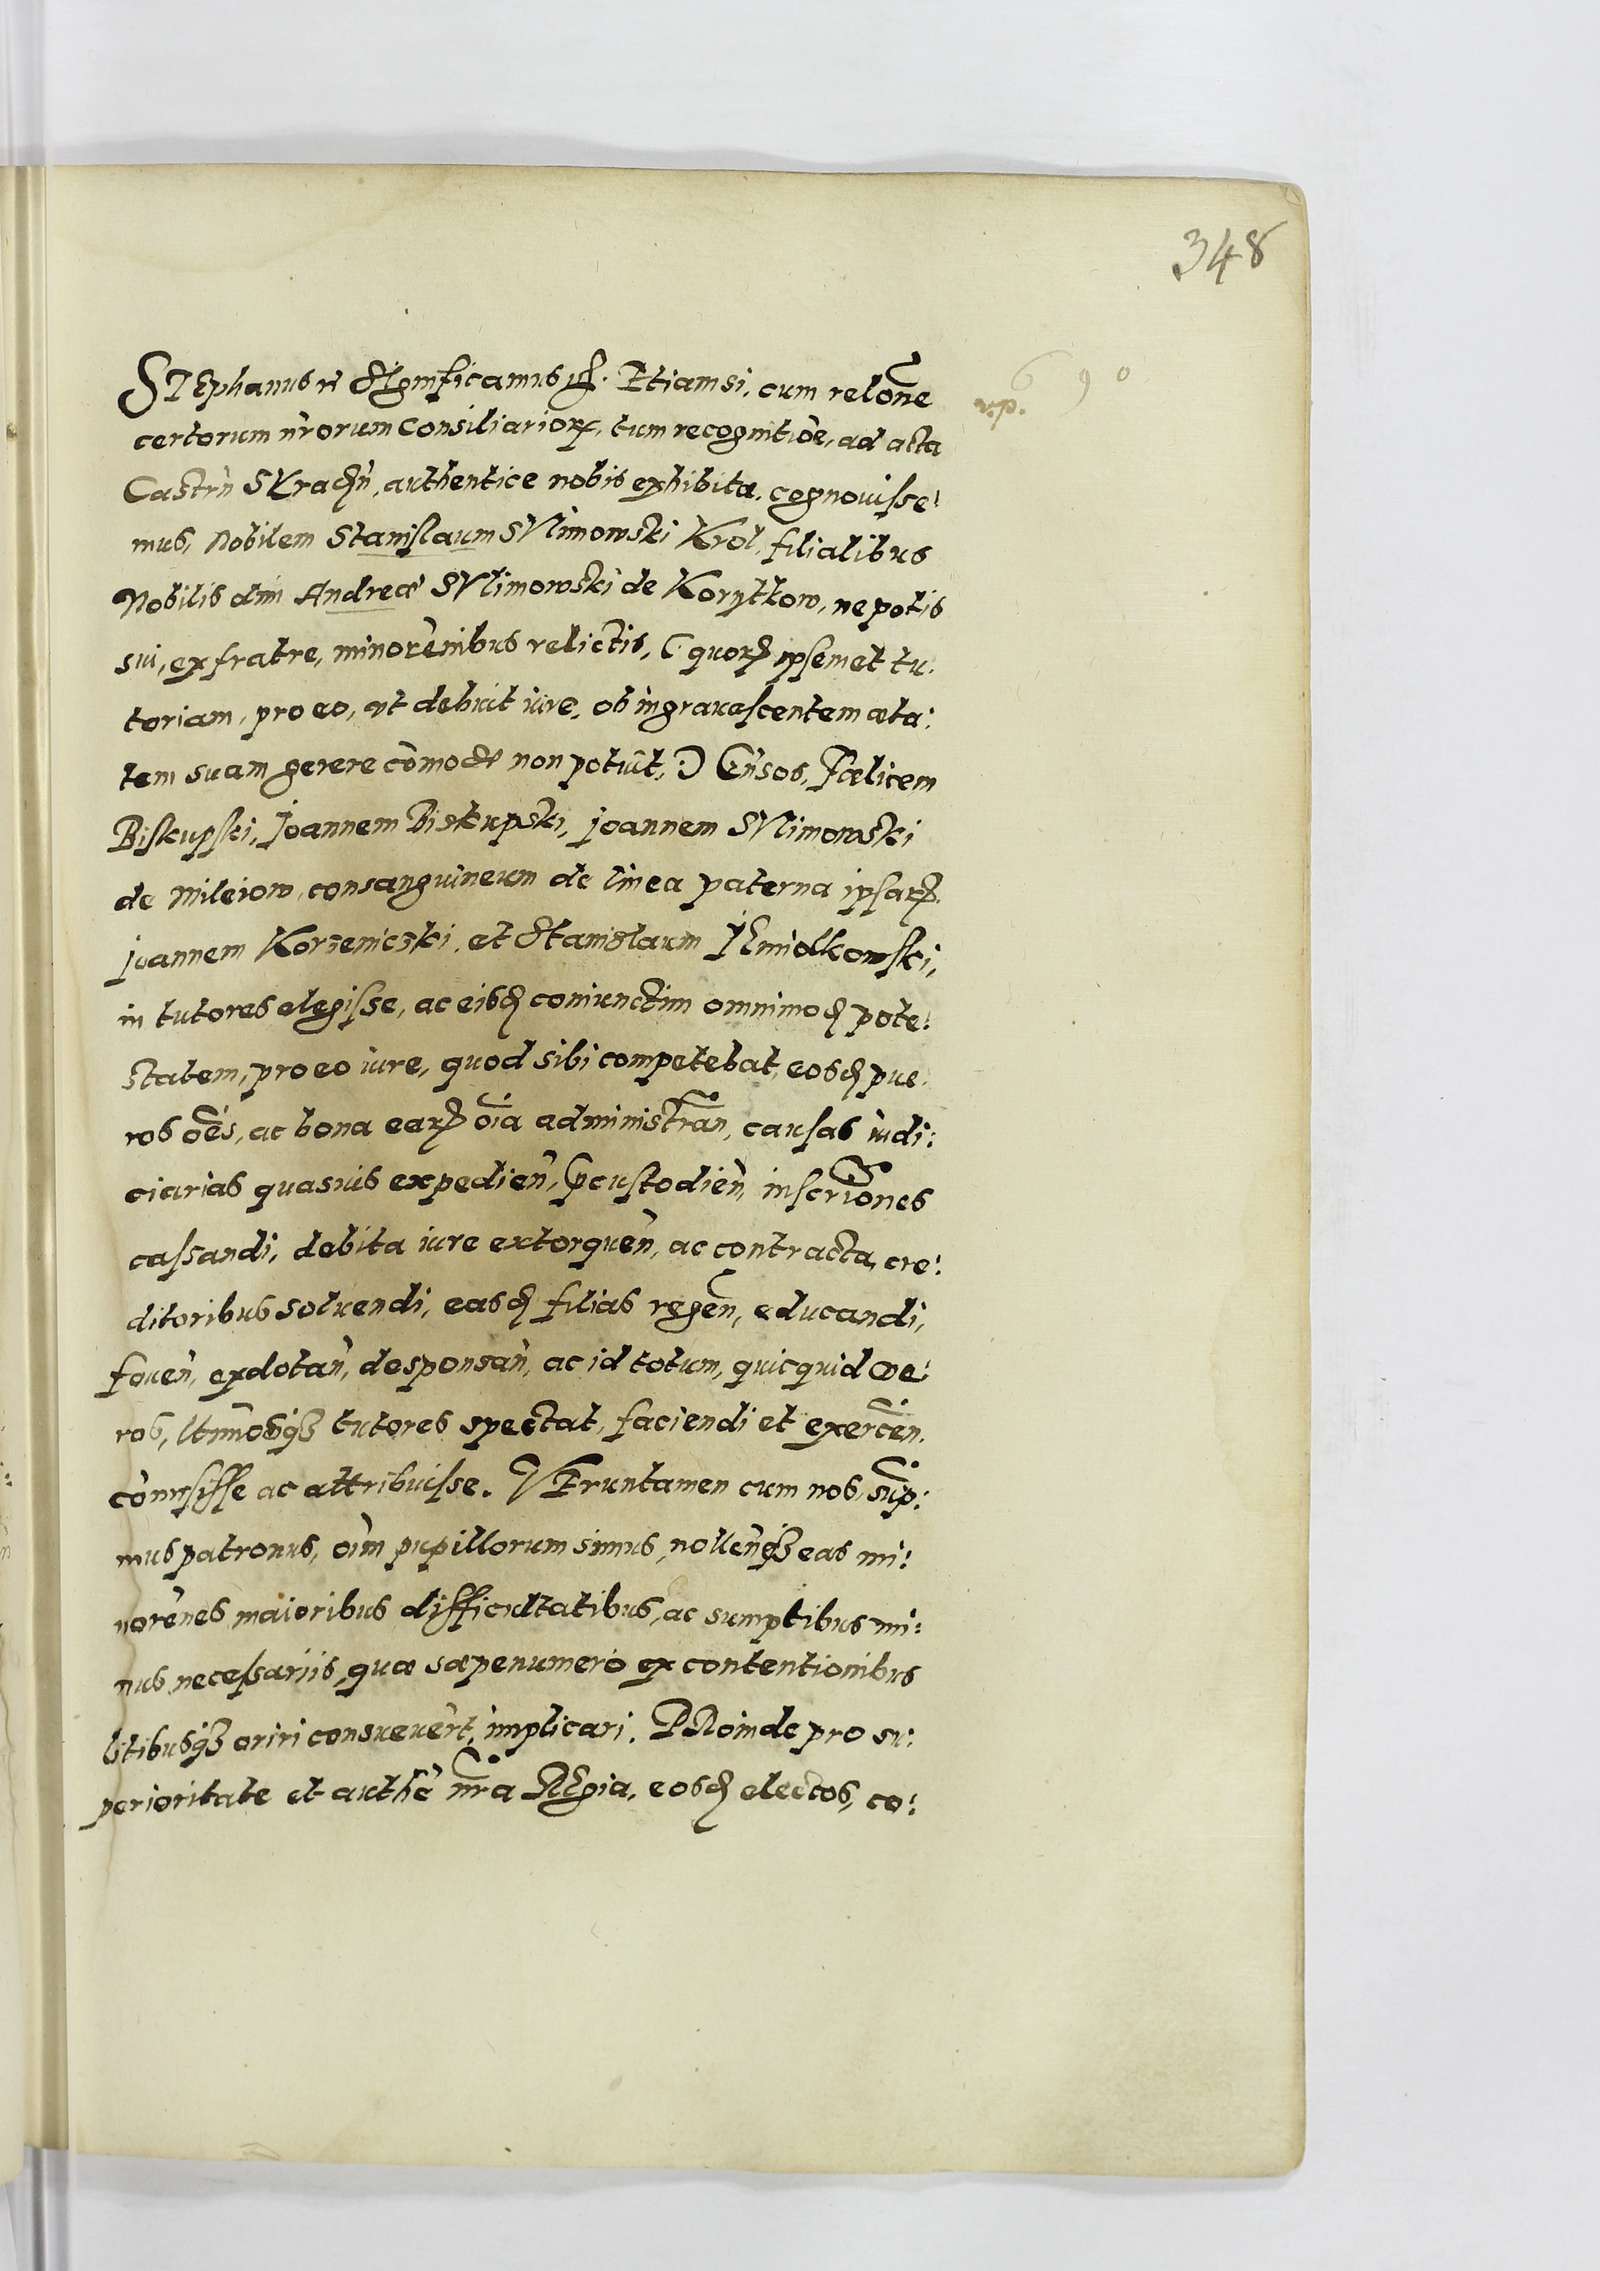 348
6 9 0
v.p.
STEphanus etc Significamus etc. Etiamsi, cum relõne
certorum nr̃orum Consiliarior, tum recognitiõe, ad acta
Castrñ SKrachñ, authentice nobis exhibita, cognouisse:
mus, Nobilem Stanislaum SVlimowski Krol, filialibus
Nobilis olim Andreæ SVlimowski de Korytkow, nepotis
sui, ex fratre, minorẽnibus relictis, (: quor ipsemet tu:
toriam, pro eo, vt debuit iure, ob ingrauascentem æta:
tem suam gerere cõmode non potuit, :) Gñsos, Fælicem
Biskupski, Joannem Biskupski, Joannem SVlimowski
de Mileiow, consanguineum de linea paterna ipsar
Joannem Korzenicski, et Stanislaum JEmiolkowski,
in tutores elegisse, ac eisd coniunctim omnimod pote:
statem, pro eo iure, quod sibi competebat, eosd pue:
ros oẽs, ac bona ear oĩa administrañ, causas iudi:
ciarias quasuis expedieñ, custodieñ, inscriõnes
cassandi, debita iure extorqueñ, ac contracta, cre:
ditoribus soluendi, easd filias regeñ, educandi,
foueñ, exdotañ, desponsañ, ac id totum, quicquid ve:
ros, ltĩmosq3 tutores spectat, faciendi et exerceñ,
cõmisisse ac attribuisse. VEruntamen cum nos, sup:
mus patronus, oĩm pupillorum simus, nolleñq3 eas mi:
norẽnes, maioribus difficultatibus, ac sumptibus mi:
nus necessariis, quæ sæpenumero ex contentionibus
litibusq3 oriri consueuer̃t, implicari. PRoinde pro su:
perioritate et authẽ nr̃a REgia, eosd electos, co: